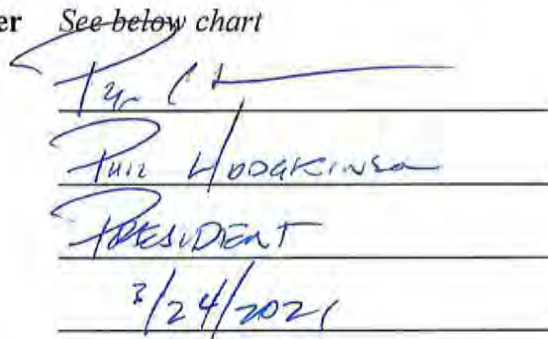 er See below chart
Phil Hodgkinson
PRESIDENT
3/24/2021